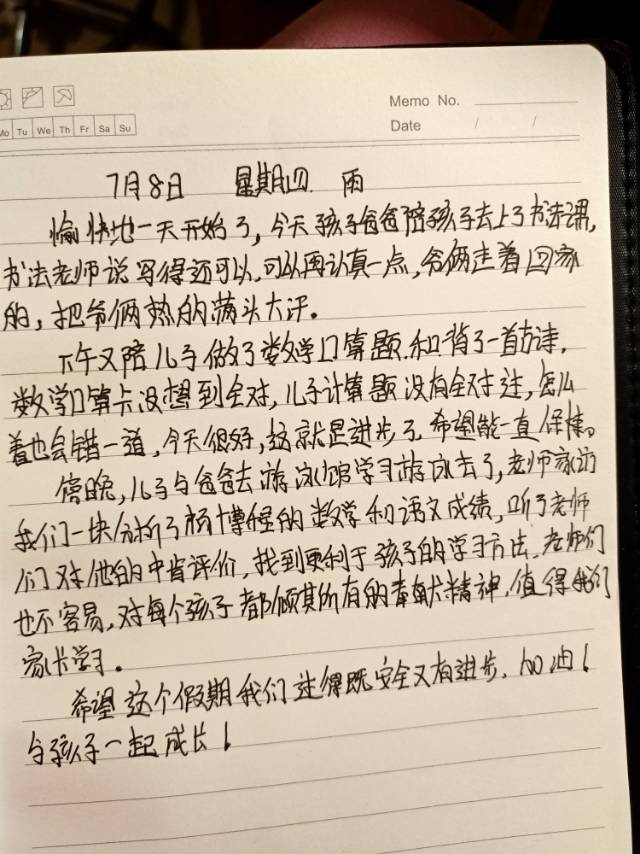 Memo No.
Mo Tu We Th Fr Sa Su
Date / /
7月8日 星期四 雨
愉快地一天开始了,今天孩子爸爸陪孩子去上了书法课,
书法老师说写得还可以,可以再认真一点,爷俩走着回家
的,把爷俩热的满头大汗。
下午又陪儿子做了数学口算题,和背了一首古诗,
数学口算卡没想到全对,儿子计算题没有全对过,怎么
着也会错一道,今天很好,这就是进步了,希望能一直保持。
傍晚,儿子与爸爸去游泳馆学习游泳去了,老师家访
我们一块分析了杨博程的数学和语文成绩,听了老师
们对他的中肯评价,找到更利于孩子的学习方法,老师们
也不容易,对每个孩子都倾其所有的奉献精神,值得我们
家长学习。
希望这个假期我们过得既安全又有进步,加油!
与孩子一起成长!